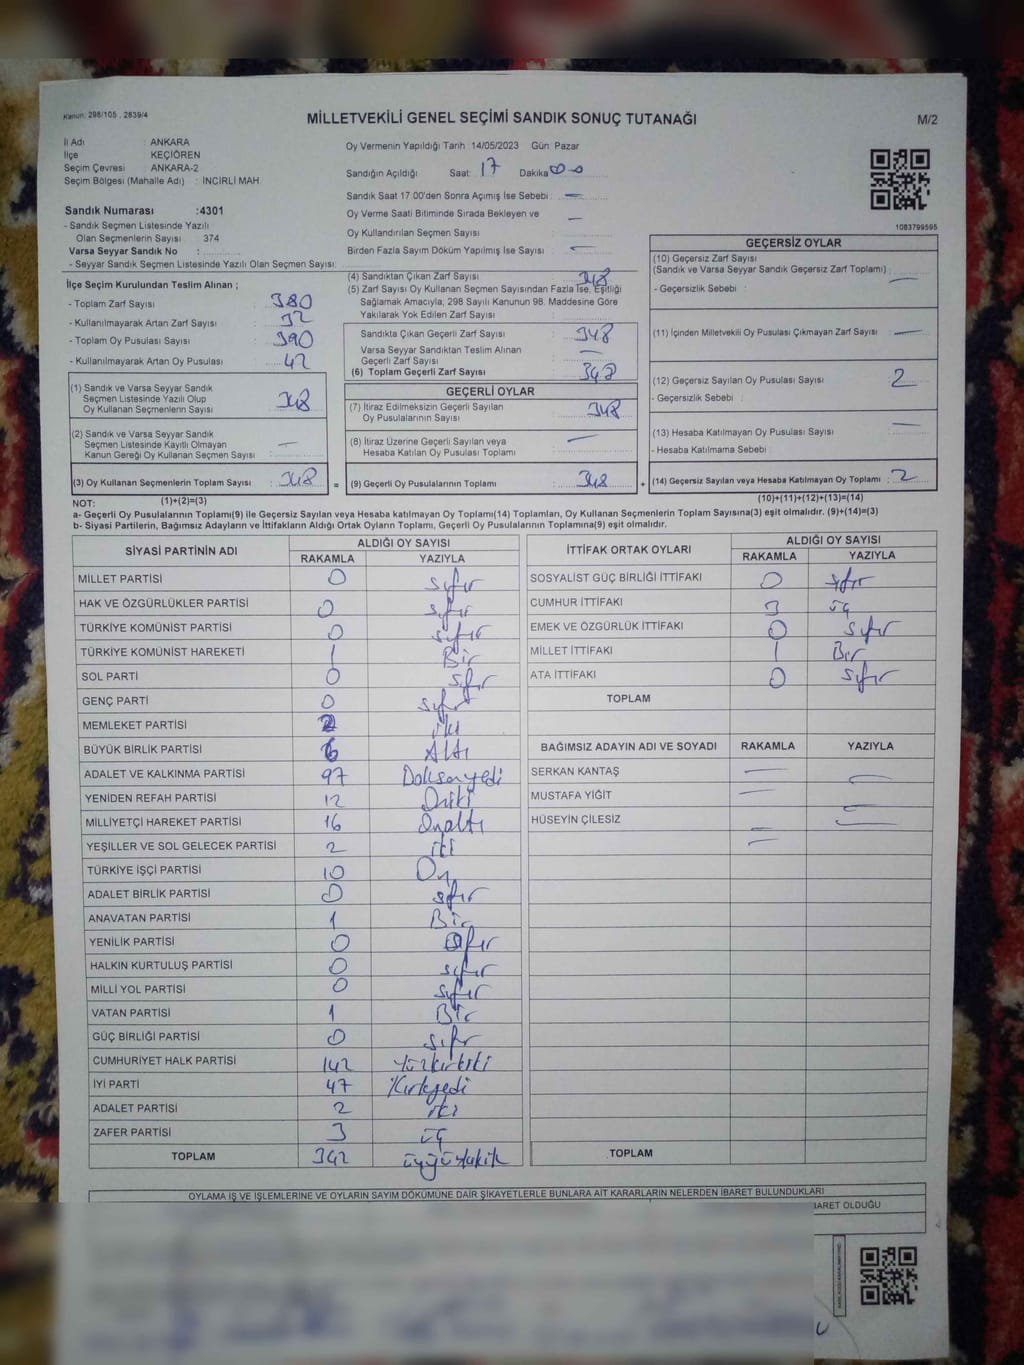 Kanun: 298/105 , 2839/4
MİLLETVEKİLİ GENEL SEÇİMİ SANDIK SONUÇ TUTANAĞI
M/2
İl Adı : ANKARA
İlçe : KEÇİÖREN
Seçim Çevresi : ANKARA-2
Seçim Bölgesi (Mahalle Adı) : İNCİRLİ MAH
Sandık Numarası :4301
- Sandık Seçmen Listesinde Yazılı
Olan Seçmenlerin Sayısı 374
Varsa Seyyar Sandık No :
- Seyyar Sandık Seçmen Listesinde Yazılı Olan Seçmen Sayısı:
Oy Vermenin Yapıldığı Tarih :14/05/2023 Gün: Pazar
Sandığın Açıldığı Saat: 17 Dakika 00
Sandık Saat 17:00'den Sonra Açılmış İse Sebebi : —
Oy Verme Saati Bitiminde Sırada Bekleyen ve
Oy Kullandırılan Seçmen Sayısı : —
Birden Fazla Sayım Döküm Yapılmış İse Sayısı : —
1083799595
İlçe Seçim Kurulundan Teslim Alınan ;
- Toplam Zarf Sayısı : 380
- Kullanılmayarak Artan Zarf Sayısı : 32
- Toplam Oy Pusulası Sayısı : 390
- Kullanılmayarak Artan Oy Pusulası : 42
(1) Sandık ve Varsa Seyyar Sandık
Seçmen Listesinde Yazılı Olup
Oy Kullanan Seçmenlerin Sayısı : 348
(2) Sandık ve Varsa Seyyar Sandık
Seçmen Listesinde Kayıtlı Olmayan
Kanun Gereği Oy Kullanan Seçmen Sayısı : —
(3) Oy Kullanan Seçmenlerin Toplam Sayısı : 348
(4) Sandıktan Çıkan Zarf Sayısı : 348
(5) Zarf Sayısı Oy Kullanan Seçmen Sayısından Fazla İse, Eşitliği
Sağlamak Amacıyla; 298 Sayılı Kanunun 98. Maddesine Göre
Yakılarak Yok Edilen Zarf Sayısı :
Sandıkta Çıkan Geçerli Zarf Sayısı : 348
Varsa Seyyar Sandıktan Teslim Alınan
Geçerli Zarf Sayısı : —
(6) Toplam Geçerli Zarf Sayısı : 348
GEÇERLİ OYLAR
(7) İtiraz Edilmeksizin Geçerli Sayılan
Oy Pusulalarının Sayısı : 348
(8) İtiraz Üzerine Geçerli Sayılan veya
Hesaba Katılan Oy Pusulası Toplamı : —
= (9) Geçerli Oy Pusulalarının Toplamı : 348
GEÇERSİZ OYLAR
(10) Geçersiz Zarf Sayısı
(Sandık ve Varsa Seyyar Sandık Geçersiz Zarf Toplamı) : —
- Geçersizlik Sebebi :
(11) İçinden Milletvekili Oy Pusulası Çıkmayan Zarf Sayısı : —
(12) Geçersiz Sayılan Oy Pusulası Sayısı : 2
- Geçersizlik Sebebi :
(13) Hesaba Katılmayan Oy Pusulası Sayısı : —
- Hesaba Katılmama Sebebi :
+ (14) Geçersiz Sayılan veya Hesaba Katılmayan Oy Toplamı : 2
NOT: (1)+(2)=(3) (10)+(11)+(12)+(13)=(14)
a- Geçerli Oy Pusulalarının Toplamı(9) ile Geçersiz Sayılan veya Hesaba katılmayan Oy Toplamı(14) Toplamları, Oy Kullanan Seçmenlerin Toplam Sayısına(3) eşit olmalıdır. (9)+(14)=(3)
b- Siyasi Partilerin, Bağımsız Adayların ve İttifakların Aldığı Ortak Oyların Toplamı, Geçerli Oy Pusulalarının Toplamına(9) eşit olmalıdır.
SİYASİ PARTİNİN ADI ALDIĞI OY SAYISI
RAKAMLA YAZIYLA
MİLLET PARTİSİ 0 sıfır
HAK VE ÖZGÜRLÜKLER PARTİSİ 0 sıfır
TÜRKİYE KOMÜNİST PARTİSİ 0 sıfır
TÜRKİYE KOMÜNİST HAREKETİ 1 Bir
SOL PARTİ 0 sıfır
GENÇ PARTİ 0 sıfır
MEMLEKET PARTİSİ 2 iki
BÜYÜK BİRLİK PARTİSİ 6 Altı
ADALET VE KALKINMA PARTİSİ 97 Doksanyedi
YENİDEN REFAH PARTİSİ 12 Oniki
MİLLİYETÇİ HAREKET PARTİSİ 16 Onaltı
YEŞİLLER VE SOL GELECEK PARTİSİ 2 iki
TÜRKİYE İŞÇİ PARTİSİ 10 On
ADALET BİRLİK PARTİSİ 0 sıfır
ANAVATAN PARTİSİ 1 Bir
YENİLİK PARTİSİ 0 sıfır
HALKIN KURTULUŞ PARTİSİ 0 sıfır
MİLLİ YOL PARTİSİ 0 sıfır
VATAN PARTİSİ 1 Bir
GÜÇ BİRLİĞİ PARTİSİ 0 sıfır
CUMHURİYET HALK PARTİSİ 142 Yüzkırkiki
İYİ PARTİ 47 Kırkyedi
ADALET PARTİSİ 2 iki
ZAFER PARTİSİ 3 üç
TOPLAM 342
İTTİFAK ORTAK OYLARI ALDIĞI OY SAYISI
RAKAMLA YAZIYLA
SOSYALİST GÜÇ BİRLİĞİ İTTİFAKI 0 sıfır
CUMHUR İTTİFAKI 3 üç
EMEK VE ÖZGÜRLÜK İTTİFAKI 0 sıfır
MİLLET İTTİFAKI 1 Bir
ATA İTTİFAKI 0 sıfır
TOPLAM
BAĞIMSIZ ADAYIN ADI VE SOYADI RAKAMLA YAZIYLA
SERKAN KANTAŞ — —
MUSTAFA YİĞİT — —
HÜSEYİN ÇİLESİZ — —
TOPLAM
OYLAMA İŞ VE İŞLEMLERİNE VE OYLARIN SAYIM DÖKÜMÜNE DAİR ŞİKAYETLERLE BUNLARA AİT KARARLARIN NELERDEN İBARET BULUNDUKLARI
İBARET OLDUĞU